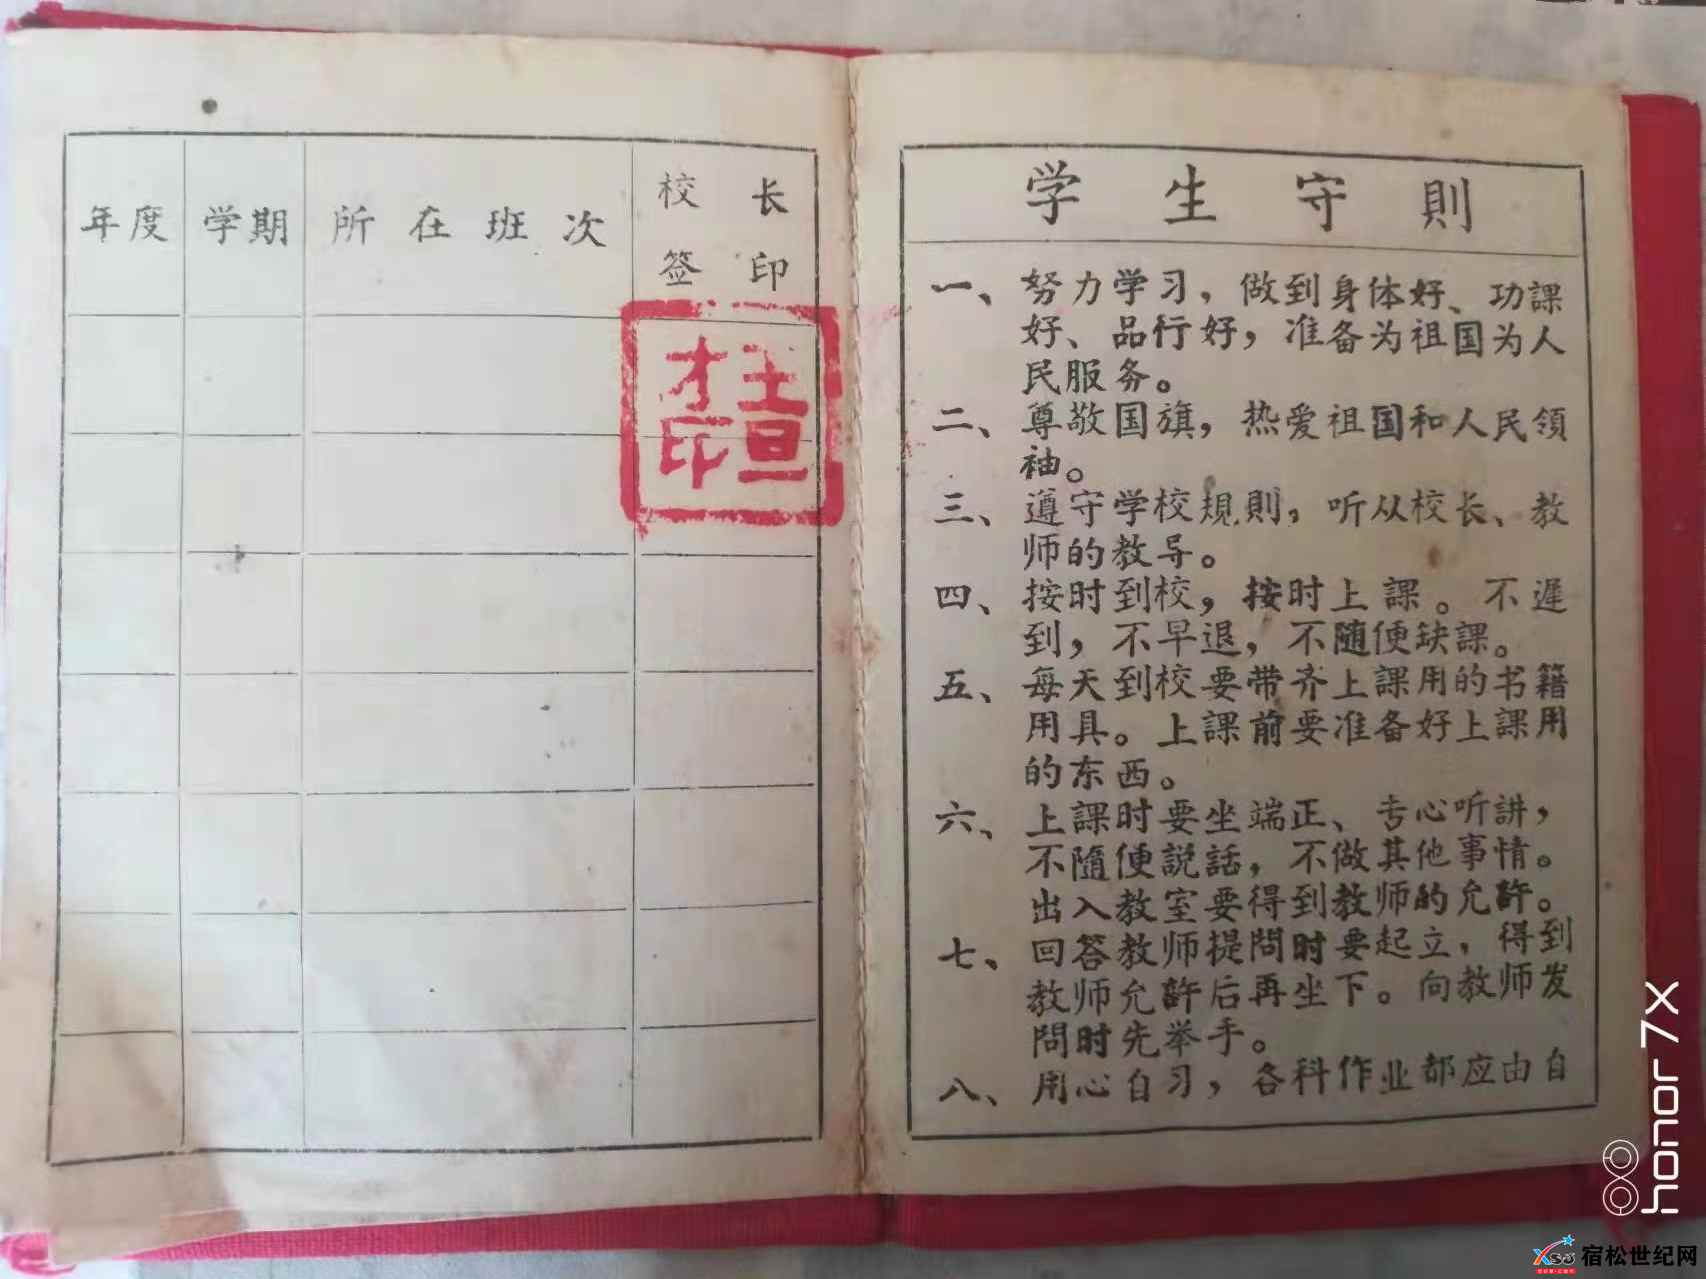 年度 学期 所在班次 校长
签印
王亘
才印
学生守則
一、努力学习，做到身体好、功課
好、品行好，准备为祖国为人
民服务。
二、尊敬国旗，热爱祖国和人民領
袖。
三、遵守学校規則，听从校长、教
师的教导。
四、按时到校，按时上課。不遲
到，不早退，不随便缺課。
五、每天到校要带齐上課用的书籍
用具。上課前要准备好上課用
的东西。
六、上課时要坐端正、专心听讲，
不隨便説話，不做其他事情。
出入教室要得到教师的允許。
七、回答教师提問时要起立，得到
教师允許后再坐下。向教师发
問时先举手。
八、用心自习，各科作业都应由自
honor 7X
宿松世纪网